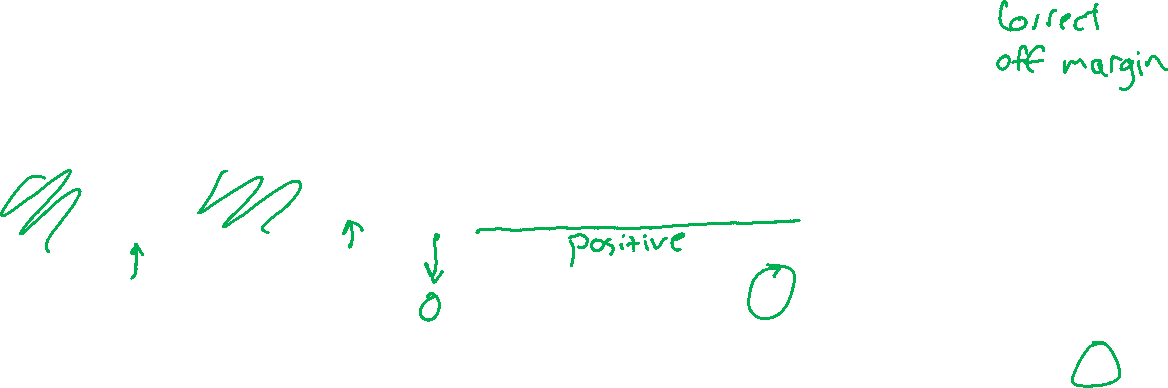 Correct
off margin
positive
0